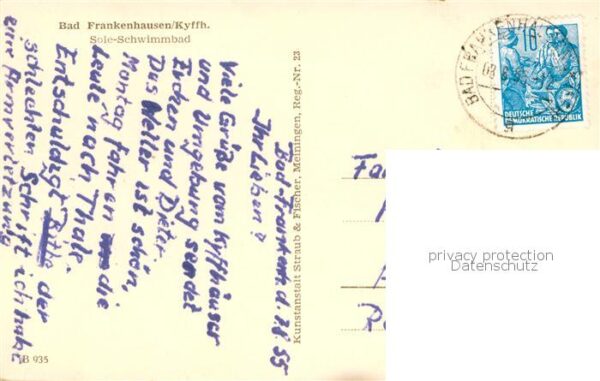 Bad Frankenhausen/Kyffh.
Sole-Schwimmbad
Bad Frankenh. d. 7.8.55
Ihr Lieben!
Viele Grüße vom Kyffhäuser
und Umgebung sendet
Evchen und Dieter.
Das Wetter ist schön,
Montag fahren die
Leute nach Thale.
Entschuldigt Bitte der
schlechten Schrift ich habe
eine Armverletzung
Kunstanstalt Straub & Fischer, Meiningen, Reg.-Nr. 23
B 935
BAD FRANKENHA
DEUTSCHE
DEMOKRATISCHE REPUBLIK
privacy protection
Datenschutz